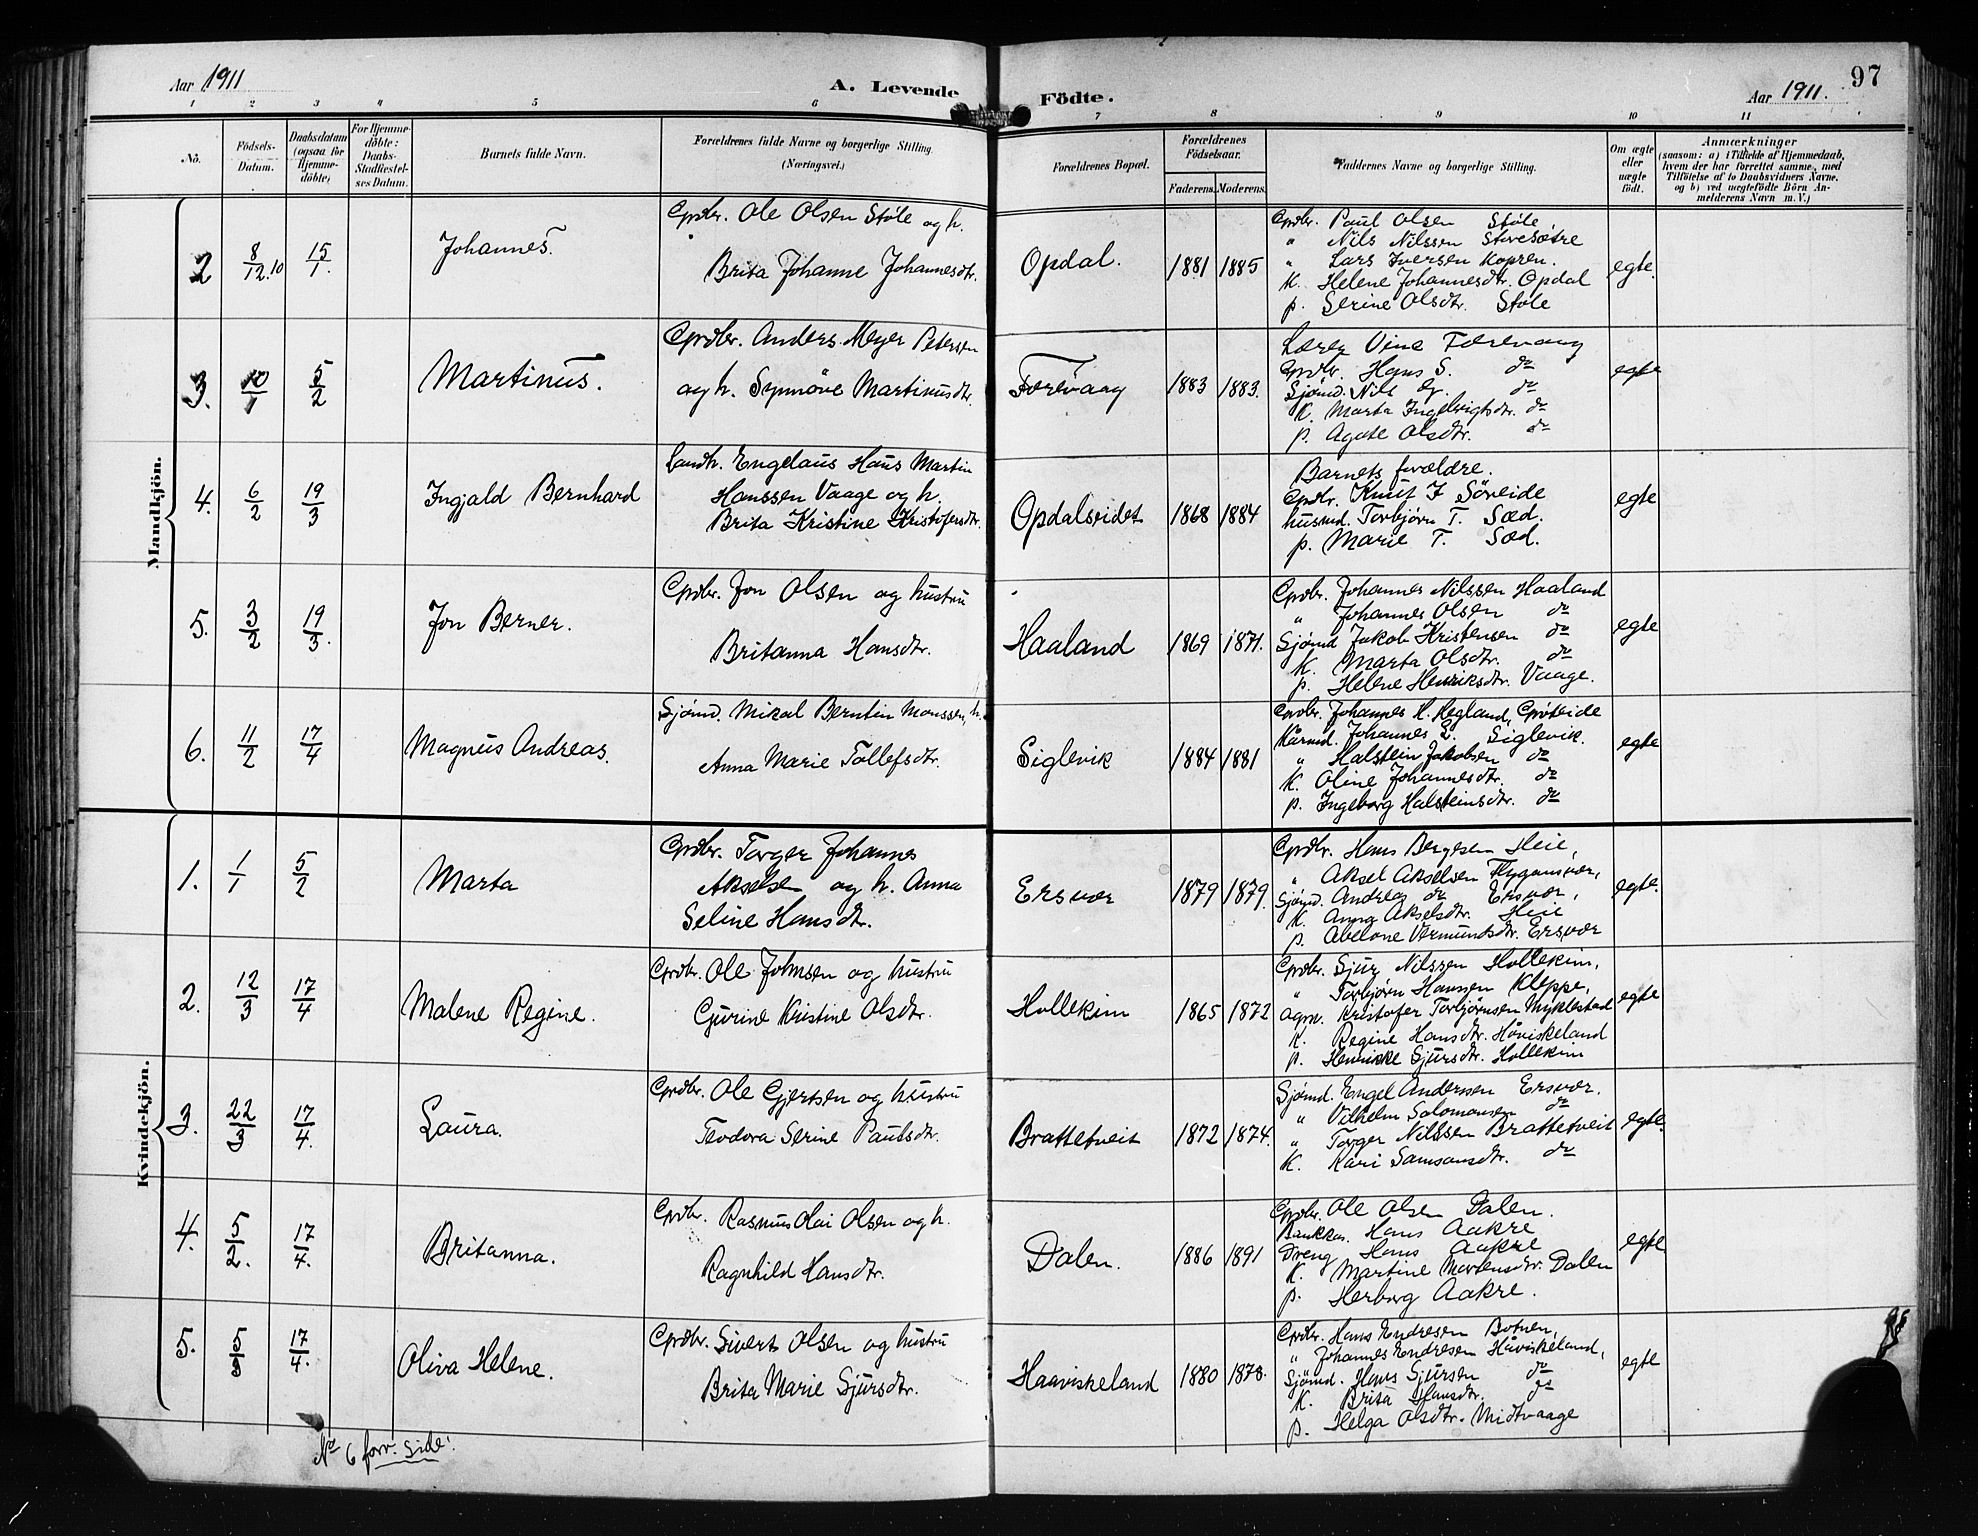 Aar 1911
A. Levende
Födte.
Aar 1911.
97
1 2 3 4 5 6 7 8 9 10 11
No.
Födsels-
Datum.
Daabsdatum
(ogsaa for
Hjemme-
döbte)
For Hjemme-
döbte:
Daabs-
Stadfæstel-
ses Datum.
Barnets fulde Navn.
Forældrenes fulde Navne og borgerlige Stilling.
(Næringsvei.)
Forældrenes Bopæl.
Forældrenes
Födselsaar.
Faderens. Moderens.
Faddernes Navne og borgerlige Stilling.
Om ægte
eller
uægte
födt.
Anmærkninger
(saasom: a) i Tilfælde af Hjemmedaab,
hvem der har forrettet samme, med
Tilföielse af to Daabsvidners Navne,
og b) ved uægtefödte Börn An-
melderens Navn m. V.)
Mandkjön.
2 8/12.10 15/1. Johannes.
Gprdbr. Ole Olsen Støle og h.
Brita Johanne Johannesdtr.
Opdal. 1881 1885
Gprdbr. Paul Olsen Støle
" Nils Nilssen Storesøtre
" Lars Iversen Kopren.
K. Helene Johannesdtr. Opdal
p. Serine Olsdtr. Støle
egte.
3. 10/1 5/2 Martinus.
Gprdbr. Anders Meyer Petersen
og h. Synnöve Martinusdtr.
Færevaag 1883 1883.
Lærer Vine Færevaag
Gprdbr. Hans S. do
Sjømd. Nils do
K. Marta Ingebrigtsdtr. do
p. Agate Olsdtr. do
egte
4. 6/2 19/3 Ingjald Bernhard
Landh. Engelaus Haus Martin
Hanssen Vaage og h.
Brita Kristine Kristofersdtr.
Opdalseidet 1868 1884
Barnets forældre.
Gprdbr. Knut J Søreide
husmd. Torbjørn T. Sæd.
p. Marie T. Sæd.
egte
5. 3/2 19/3. Jon Berner.
Gprdbr. Jon Olsen og hustru
Britanna Hansdtr.
Haaland 1869 1871.
Gprdbr. Johannes Nilssen Haaland
" Johannes Olsen do
Sjømd Jakob Kristensen do
K. Marta Olsdtr. do
p. Helene Henriksdtr. Vaage.
egte
6. 11/2 17/4 Magnus Andreas.
Sjømd. Mikal Berntin Monssen, h.
Anna Marie Tollefsdtr.
Siglevik 1884 1881
Gprdbr. Johannes H. Hegland,
Kårmd. Johannes L. Siglevik.
" Halstein Jakobsen do
K. Oline Johannesdtr. do
p. Ingeborg Halsteinsdtr. do
egte
Kvindekjön.
1. 1/1 5/2 Marta
Gprdbr. Torger Johannes
Akselsen og h. Anna
Seline Hansdtr.
Ersvær 1879 1879.
Gprdbr. Hans Bergesen Heie,
" Aksel Akselsen Flygansvær,
Sjømd. Andreas do Ersvær,
K. Anna Akselsdtr. Heie
p. Abelone Vermundsdtr. Ersvær
egte.
2. 12/3 17/4 Malene Regine.
Gprdbr. Ole Johnsen og hustru
Gjurine Kristine Olsdtr.
Hollekim 1865 1872
Gprdbr. Sjur Nilssen Hollekim,
" Torbjørn Hanssen Kleppe,
agm. Kristofer Torbjørnsen Myklestad
K. Regine Hansdtr. Håviskeland
p. Henrikke Sjursdtr. Hollekim
egte
3. 22/3 17/4. Laura.
Gprdbr. Ole Gjertsen og hustru
Teodora Serine Paulsdtr.
Brattetveit 1872 1874.
Sjømd. Engel Anderssen Ersvær.
" Vilhelm Salomonsen do
" Torger Nilssen Brattetveit
K. Kari Samsonsdtr. do
egte.
4. 5/2. 17/4. Britanna.
Gprdbr. Rasmus Olai Olsen og h.
Ragnhild Hansdtr.
Dalen. 1886 1891
Gprdbr. Ole Olsen Dalen.
Bankkas. Hans Aakre
Dreng Hans Aakre
K. Martine Mortensdtr. Dalen
p. Herborg Aakre.
egte
5. 5/3 17/4. Oliva Helene.
Gprdbr. Sivert Olsen og hustru
Brita Marie Sjursdtr.
Haaviskeland 1880 1878.
Gprdbr. Hans Endresen Botnen,
" Johannes Endresen Håviskeland,
Sjømd. Hans Sjursen do
K. Brita Hansdtr. do
p. Helga Olsdtr. Midtvaage
egte
No 6 forr. side.